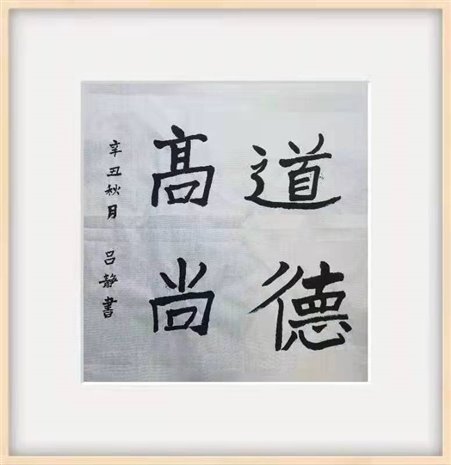 道德
髙尚
辛丑秋月 吕静書